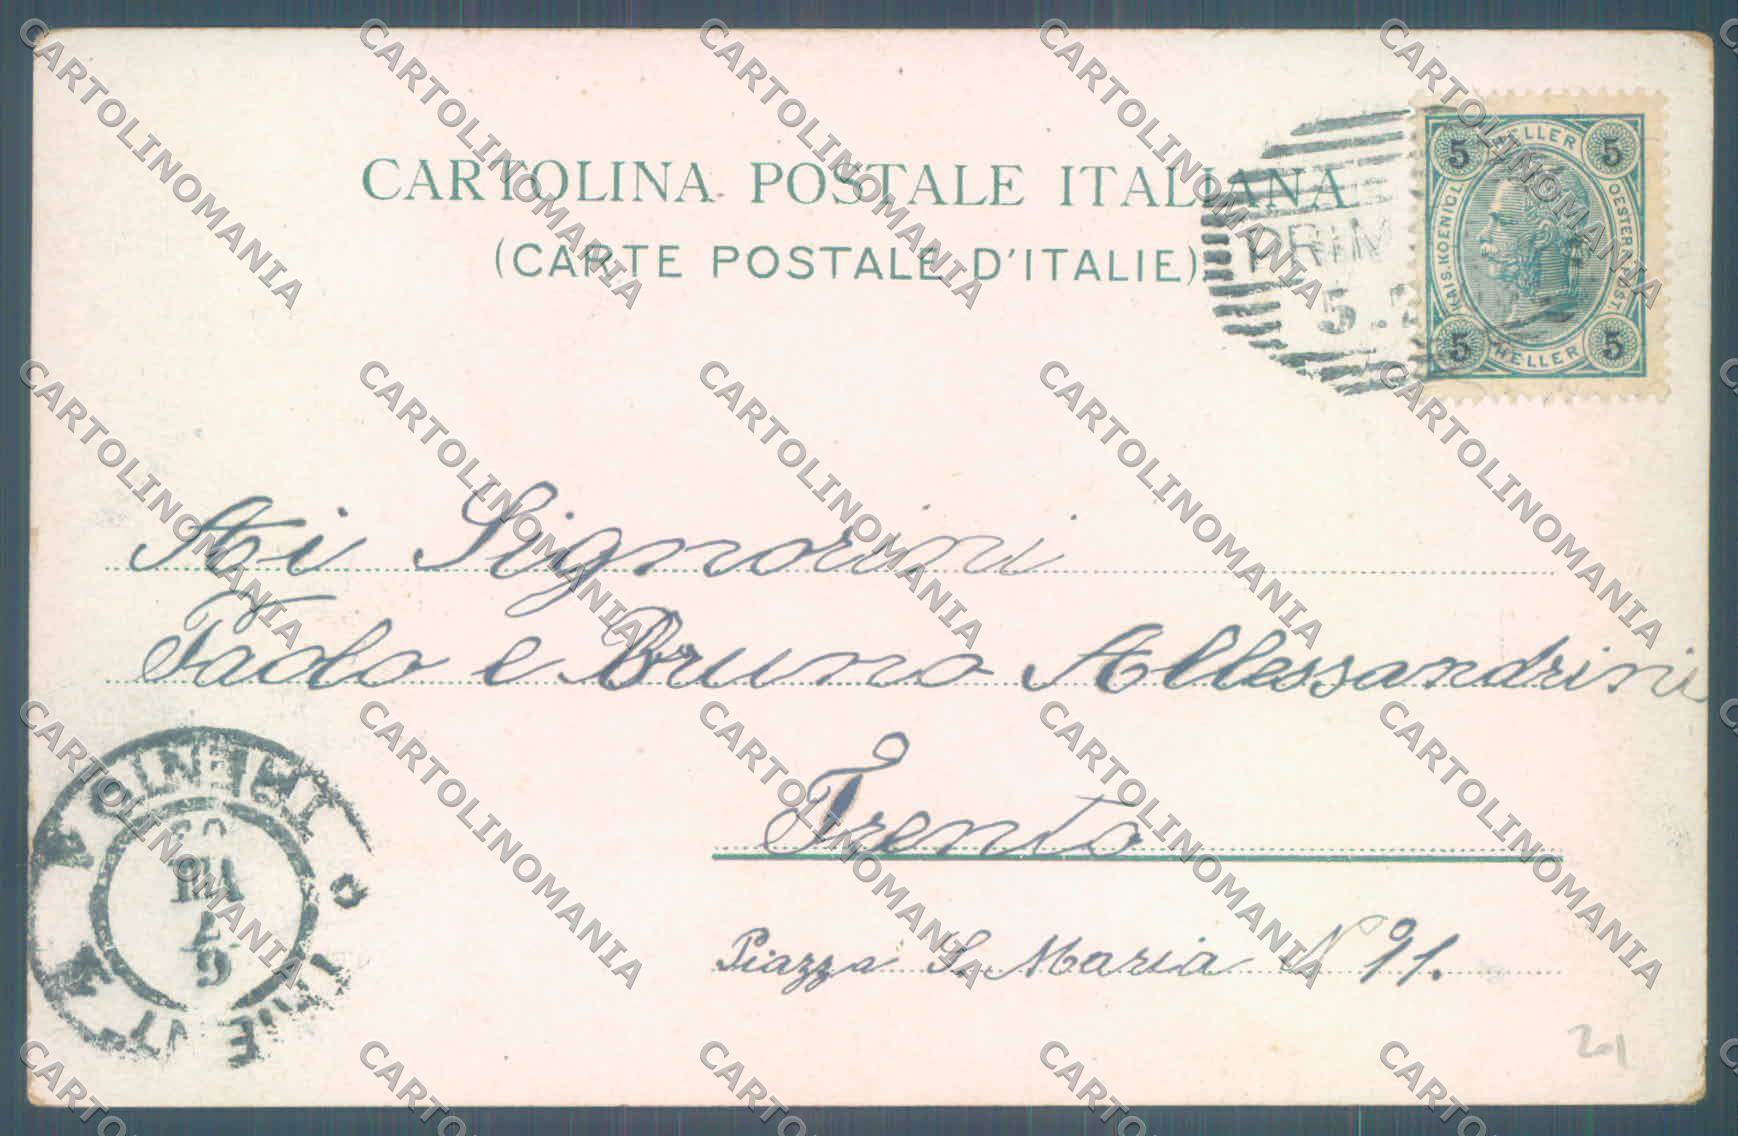 CARTOLINA POSTALE ITALIANA
(CARTE POSTALE D'ITALIE)
5 HELLER 5
KAIS. KOENIGL. OESTERR. POST.
5 HELLER 5
PRIM
5.
Ai Signorini
Paolo e Bruno Allessandrini
Trento
Piazza S. Maria N 91.
TRIENT
VII
201
CARTOLINOMANIA